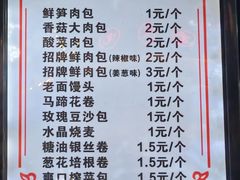 鲜笋肉包 1元/个
香菇大肉包 2元/个
酸菜肉包 2元/个
招牌鲜肉包(辣椒味) 2元/个
招牌鲜肉包(姜葱味) 3元/个
老面馒头 1元/个
马蹄花卷 1元/个
玫瑰豆沙包 1元/个
水晶烧麦 1元/个
糖油银丝卷 1.5元/个
葱花培根卷 1.5元/个
爽口榨菜包 1.5元/个